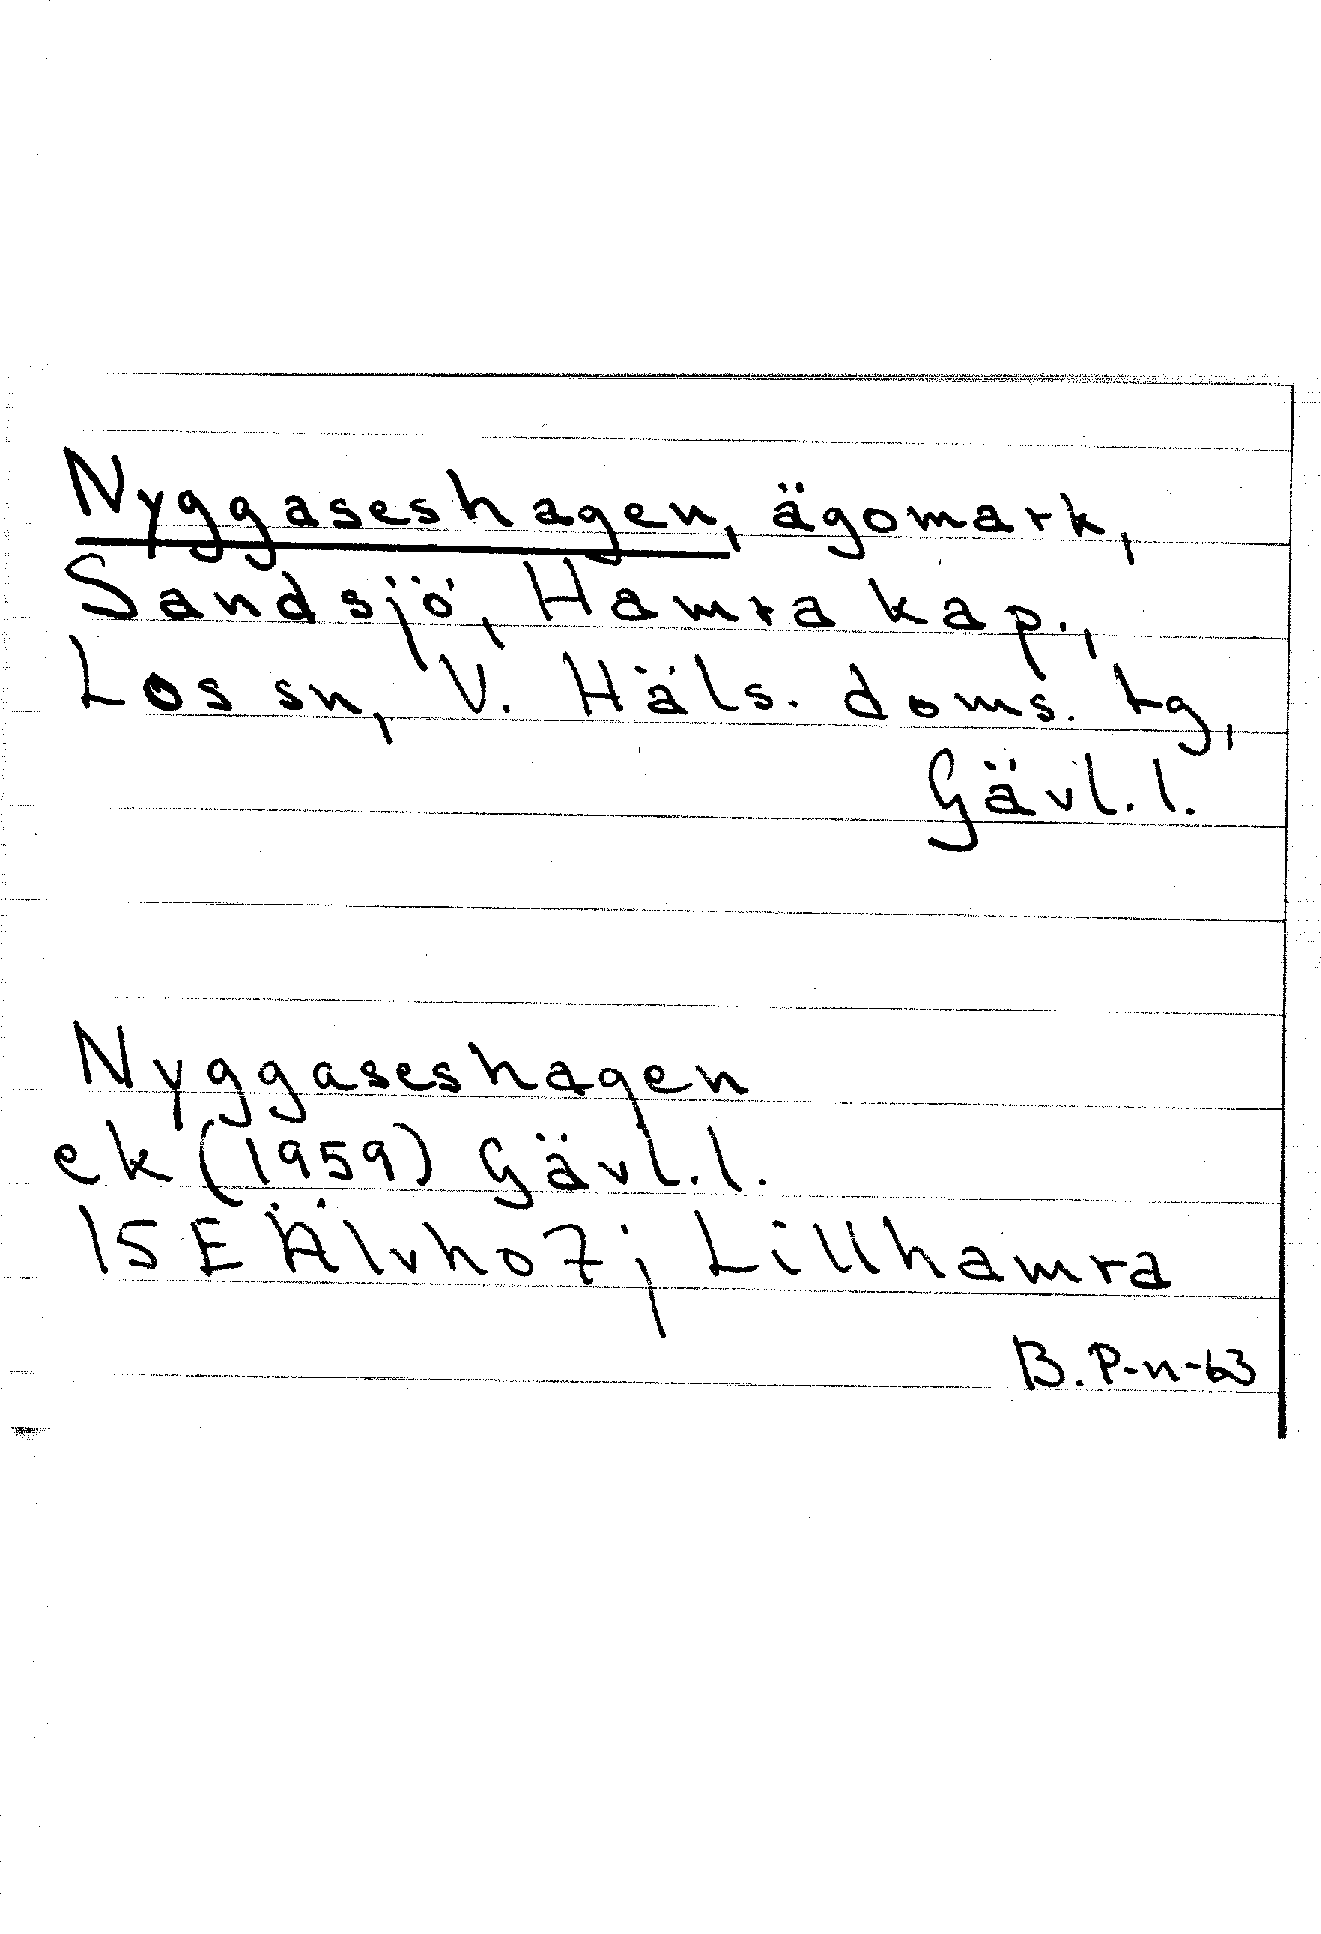 Nyggaseshagen, ägomark,
Sandsjö, Hamra kap.,
Los sn, V. Häls. doms. tg,
Gävl.l.
Nyggaseshagen
ek (1959) Gävl.l.
15E Älvho 7; Lillhamra
B. P-n-63